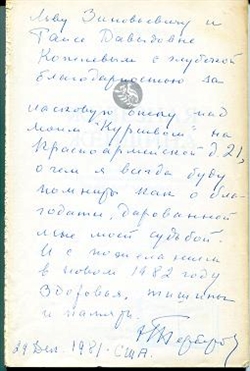 Льву Зиновьевичу и
Таисе Давыдовне
Копелевым с глубокой
благодарностью за
ласковую опеку над
моим "Курсивом" на
Красноармейской д. 21,
о чем я всегда буду
помнить как о бла-
годати, дарованной
мне моей судьбой.
И с пожеланием
в новом 1982 году
здоровья, тишины
и памяти.
Н Берберова
29 Дек. 1981 - США.